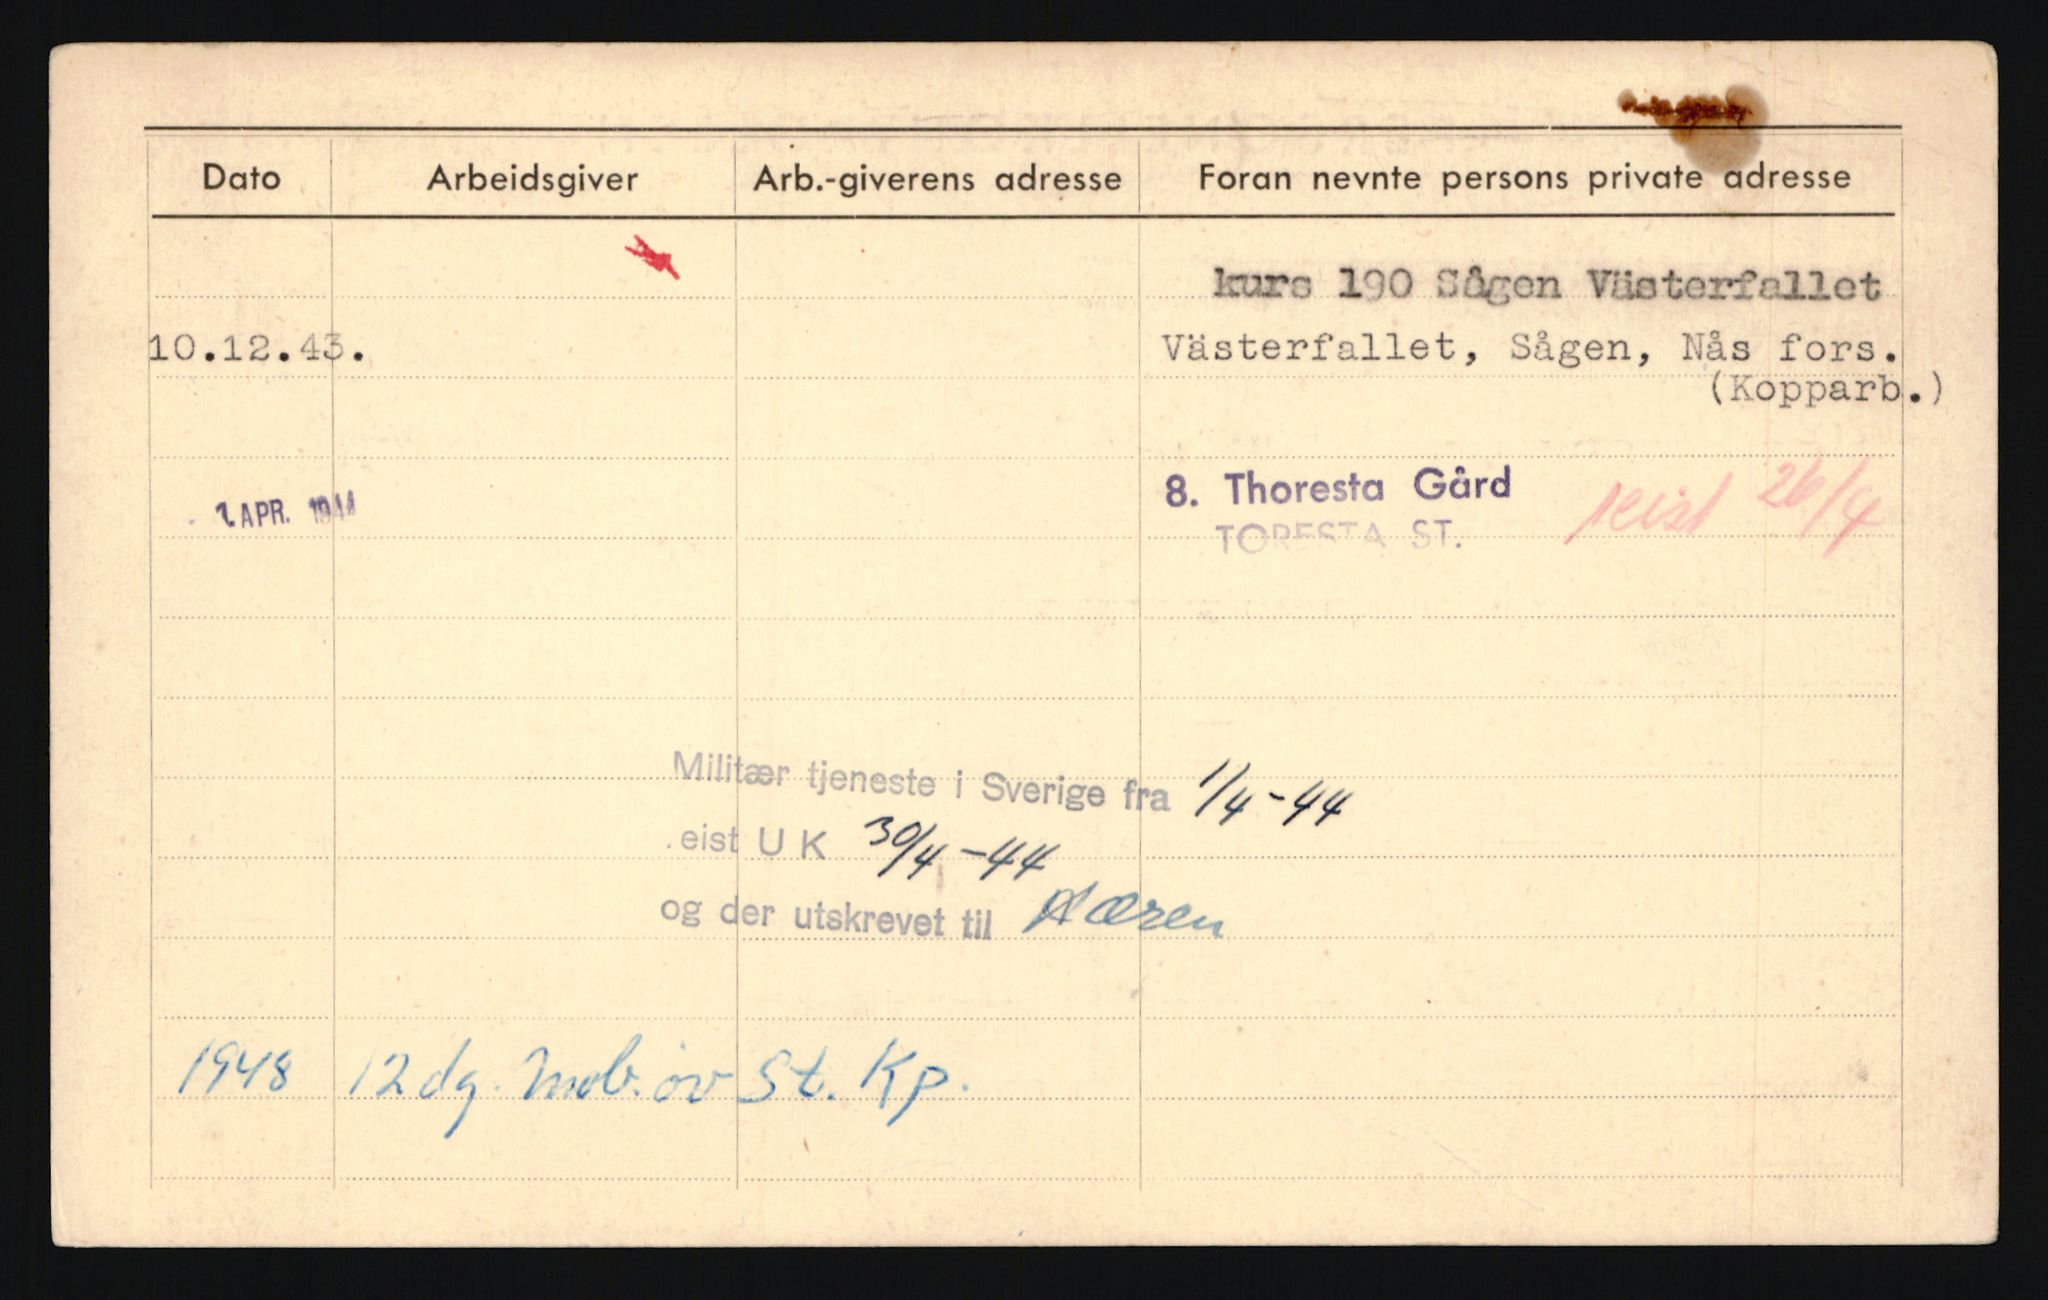 Dato Arbeidsgiver Arb.-giverens adresse Foran nevnte persons private adresse
kurs 190 Sågen Västerfallet
10.12.43. Västerfallet, Sågen, Nås fors.
(Kopparb.)
8. Thoresta Gård reist 26/4
1. APR. 1944
TORESTA ST.
Militær tjeneste i Sverige fra 1/4-44
eist U K 30/4-44
og der utskrevet til Hæren
1948 12 dg. Mob. øv St. Kp.